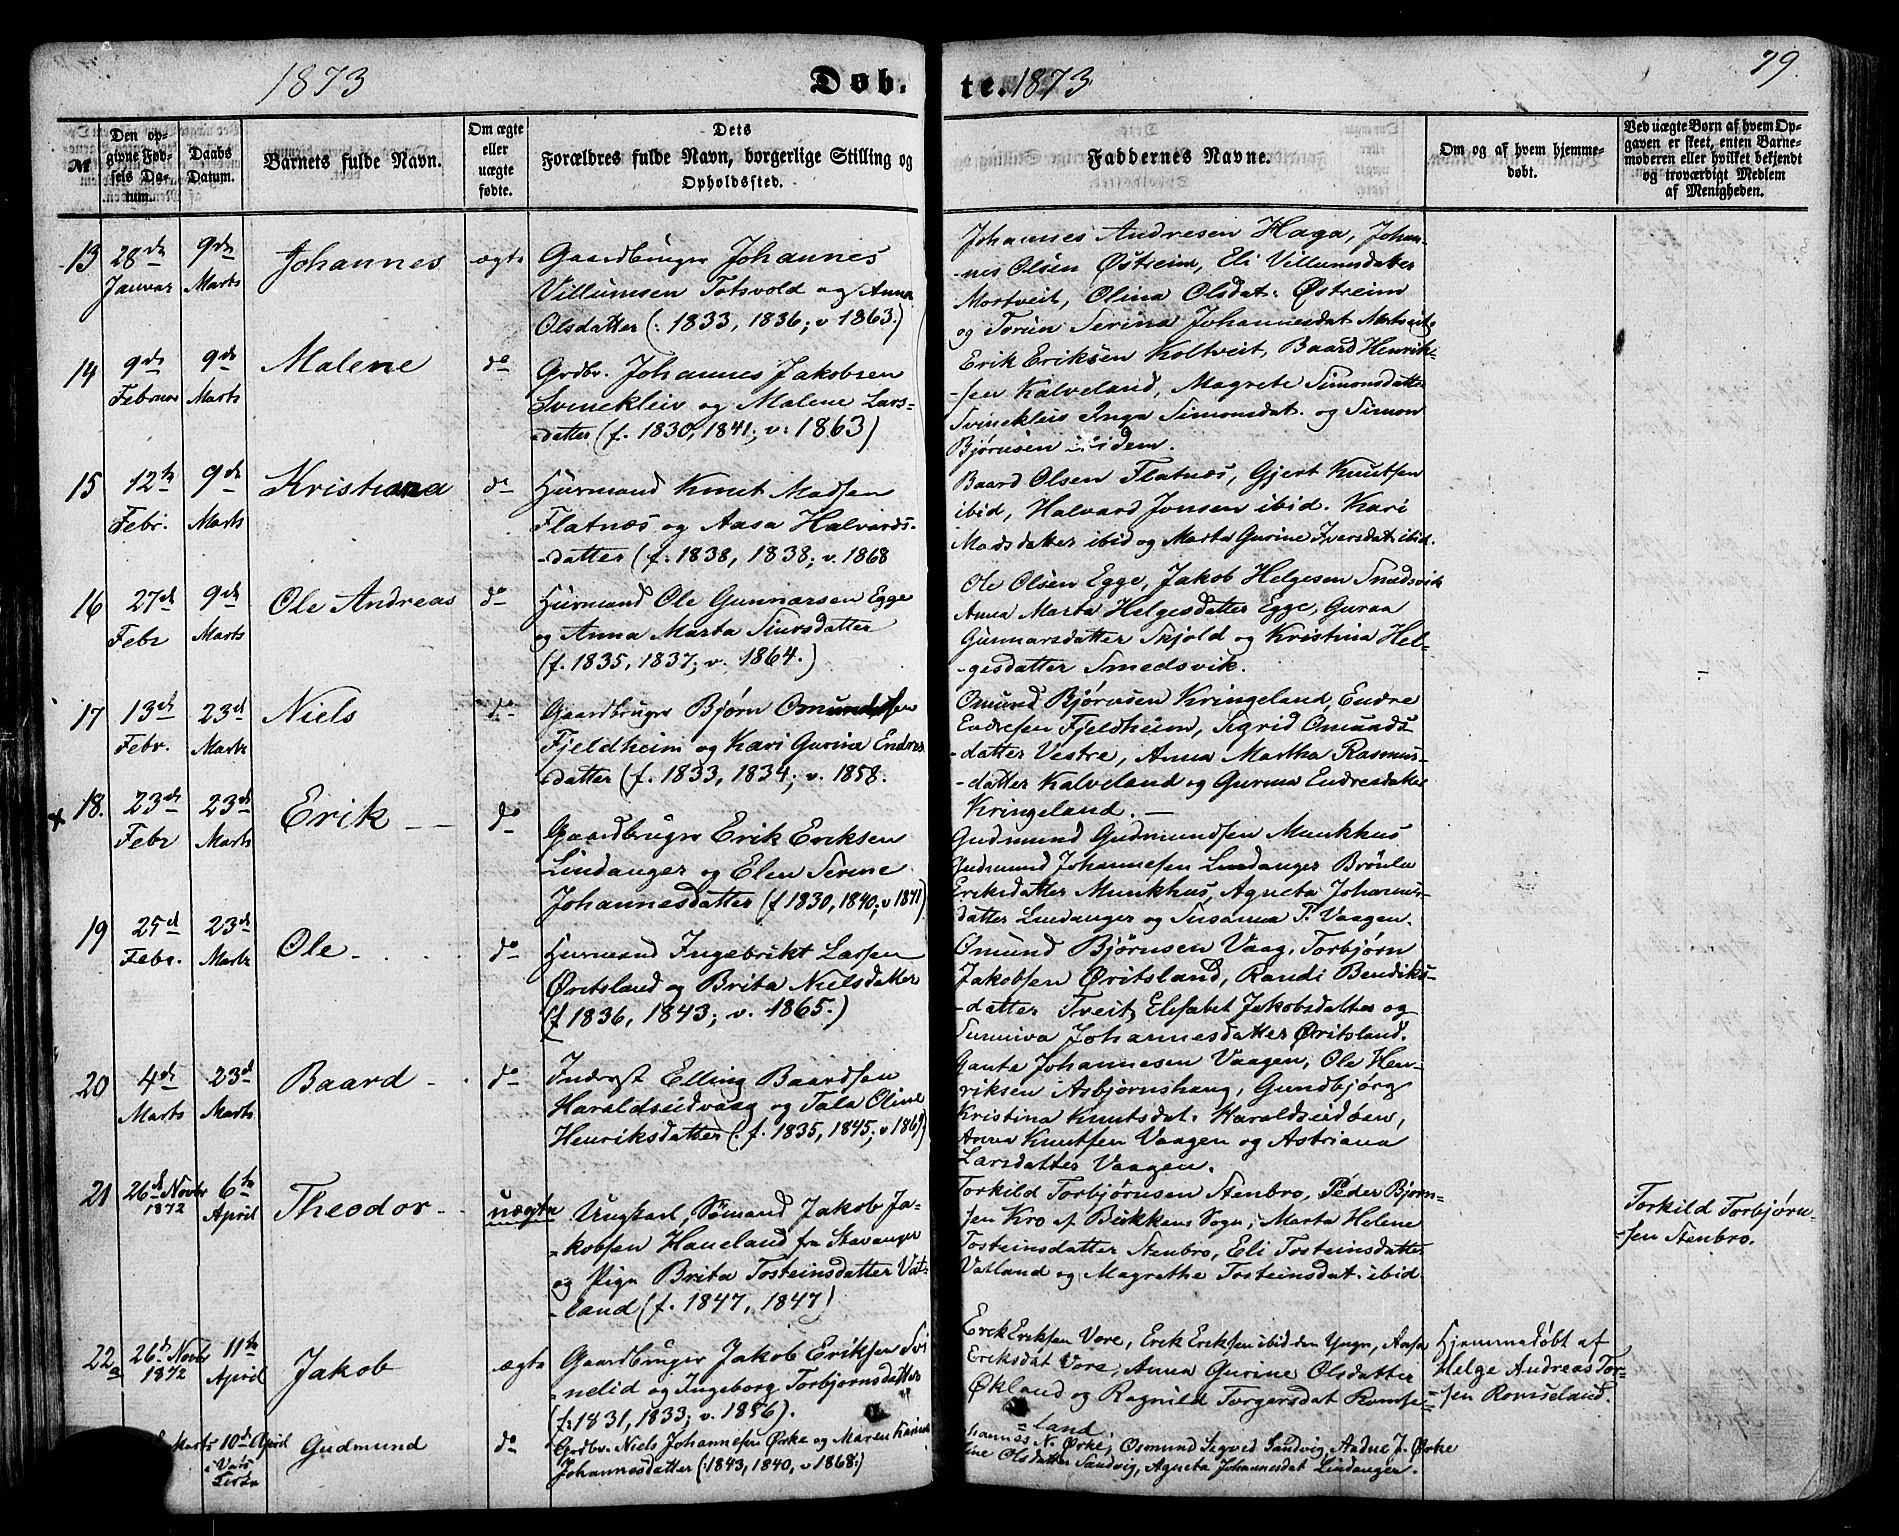 1873
Døb. te. 1873
79.
№
Den opgivne Fødsels Datum.
Daabs Datum.
Barnets fulde Navn.
Om ægte eller uægte fødte.
Dets Forældres fulde Navn, borgerlige Stilling og Opholdssted.
Faddernes Navne.
Om og af hvem hjemmedøbt.
Ved uægte Børn af hvem Opgaven er skeet, enten Barnemoderen eller hvilket bekjendt og troværdigt Medlem af Menigheden.
13 28de Januar 9de Marts Johannes ægte
Gaardbruger Johannes
Villumsen Totsvold og Anna
Olsdatter (: 1833, 1836; v 1863.)
Johannes Andresen Haga, Johan-
-nes Olsen Østreim, Eli Villumsdatter
Mortveit, Olina Olsdat: Østreim
og Torun Serina Johannesdat Mortveit.
14 9de Februar 9de Marts Malene do
Grdbr. Johannes Jakobsen
Svinekleiv og Malene Lars-
-datter (f. 1830, 1841; v: 1863)
Erik Eriksen Koltveit, Baard Henrik-
-sen Kalveland, Magrete Simonsdatter
Svinekleiv Inga Simonsdat. og Simon
Bjørnsen ibidem.
15 12te Febr. 9de Marts Kristiana do
Huusmand Knut Madsen
Flatnæs og Aasa Halvards-
-datter (f. 1838, 1838; v. 1868
Baard Olsen Flatnæs, Gjert Knutsen
ibid, Halvard Jonsen ibid. Kari
Madsdatter ibid og Marta Gurine Iversdat ibid.
16 27de Febr 9de Marts Ole Andreas do
Huusmand Ole Gunnarsen Egge
og Anna Marta Siursdatter
(f. 1835, 1837; v. 1864.)
Ole Olsen Egge, Jakob Helgesen Smedsvik
Anna Marta Helgesdatter Egge, Guraa
Gunnarsdatter Skjold og Kristina Hel-
-gesdatter Smedsvik.
17 13de Febr. 23de Marts Niels do
Gaardbruger Bjørn Omundsen
Fjeldheim og Kari Gurina Endres
-datter (f. 1833, 1834; v. 1858.
Omund Bjørnsen Kringeland, Endre
Endresen Fjeldheim, Sigrid Omunds
-datter Vestre, Anna Martha Rasmus-
-datter Kalveland og Gurina Endresdatter
Kringeland. —
18. 23de Febr 23de Marts Erik — do
Gaardbruger Erik Eriksen
Lindanger og Elen Serine
Johannesdatter (f 1830, 1840; v 1871)
Gudmund Gudmundsen Munkhus
Gudmund Johannesen Lindanger
Eriksdatter Munkhus, Agneta Johannes-
datter Lindanger og Susanna P. Vaagen.
19 25de Febr. 23de Marts Ole do
Huusmand Ingebrikt Larsen
Øritsland og Brita Nielsdatter
(f 1836, 1843; v. 1865.)
Omund Bjørnsen Vaag, Torbjørn
Jakobsen Øritsland, Randi Bendiks-
-datter Tveit, Elisabet Jakobsdatter og
Sunniva Johannesdatter Øritsland.
20 4de Marts 23de Marts Baard do
Inderst Elling Baardsen
Haraldseidvaag og Tala Oline
Henriksdatter (: f. 1835, 1845; v 1869)
Gaute Johannesen Vaagen, Ole Hen-
riksen Asbjørnshaug, Gundbjørg
Kristina Knutsdat. Haraldseidøen,
Anna Knutsen Vaagen og Astriana
Larsdatter Vaagen.
21 26de Novbr 1872 6te April Theodor uægte
Ungkarl, Sømand Jakob Ja-
-kobsen Haueland fra Stavanger
og Pige Brita Tosteinsdatter Vat-
-land (f. 1847, 1847)
Torkild Torbjørnsen Stenbro, Peder Bjørn-
sen Kro af Bukkens Sogn, Marta Helene
Tosteinsdatter Stenbro, Eli Tosteinsdatter
Vatland og Magrethe Tosteinsdat. ibid
Torkild Torbjørn-
-sen Stenbro.
22a 26de Novbr 1872 11te April Jakob ægte
Gaardbruger Jakob Eriksen Svi
-nelid og Ingeborg Torbjørnsdatter
(f: 1831, 1833; v. 1856).
Erik Eriksen Vore, Erik Eriksen ibid den Yngr, Aasa
Eriksdat Vore, Anna Gurine Olsdatter
Økland og Ragnild Torgersdat Romse-
-land
Hjemmedøbt af
Helge Andreas Tor-
-sen Romseland.
Marts 10de April i Vats Kirke Gudmund do
Grdbr. Niels Johannesen Ørke og Maren Karine
Johannesdatter (: 1843, 1840, v 1868.)
hannes N. Ørke, Osmund Sigved Sandvig, Aadne J. Ørke
line Olsdatter Sandvig, Agneta Johannesdat Lindanger.